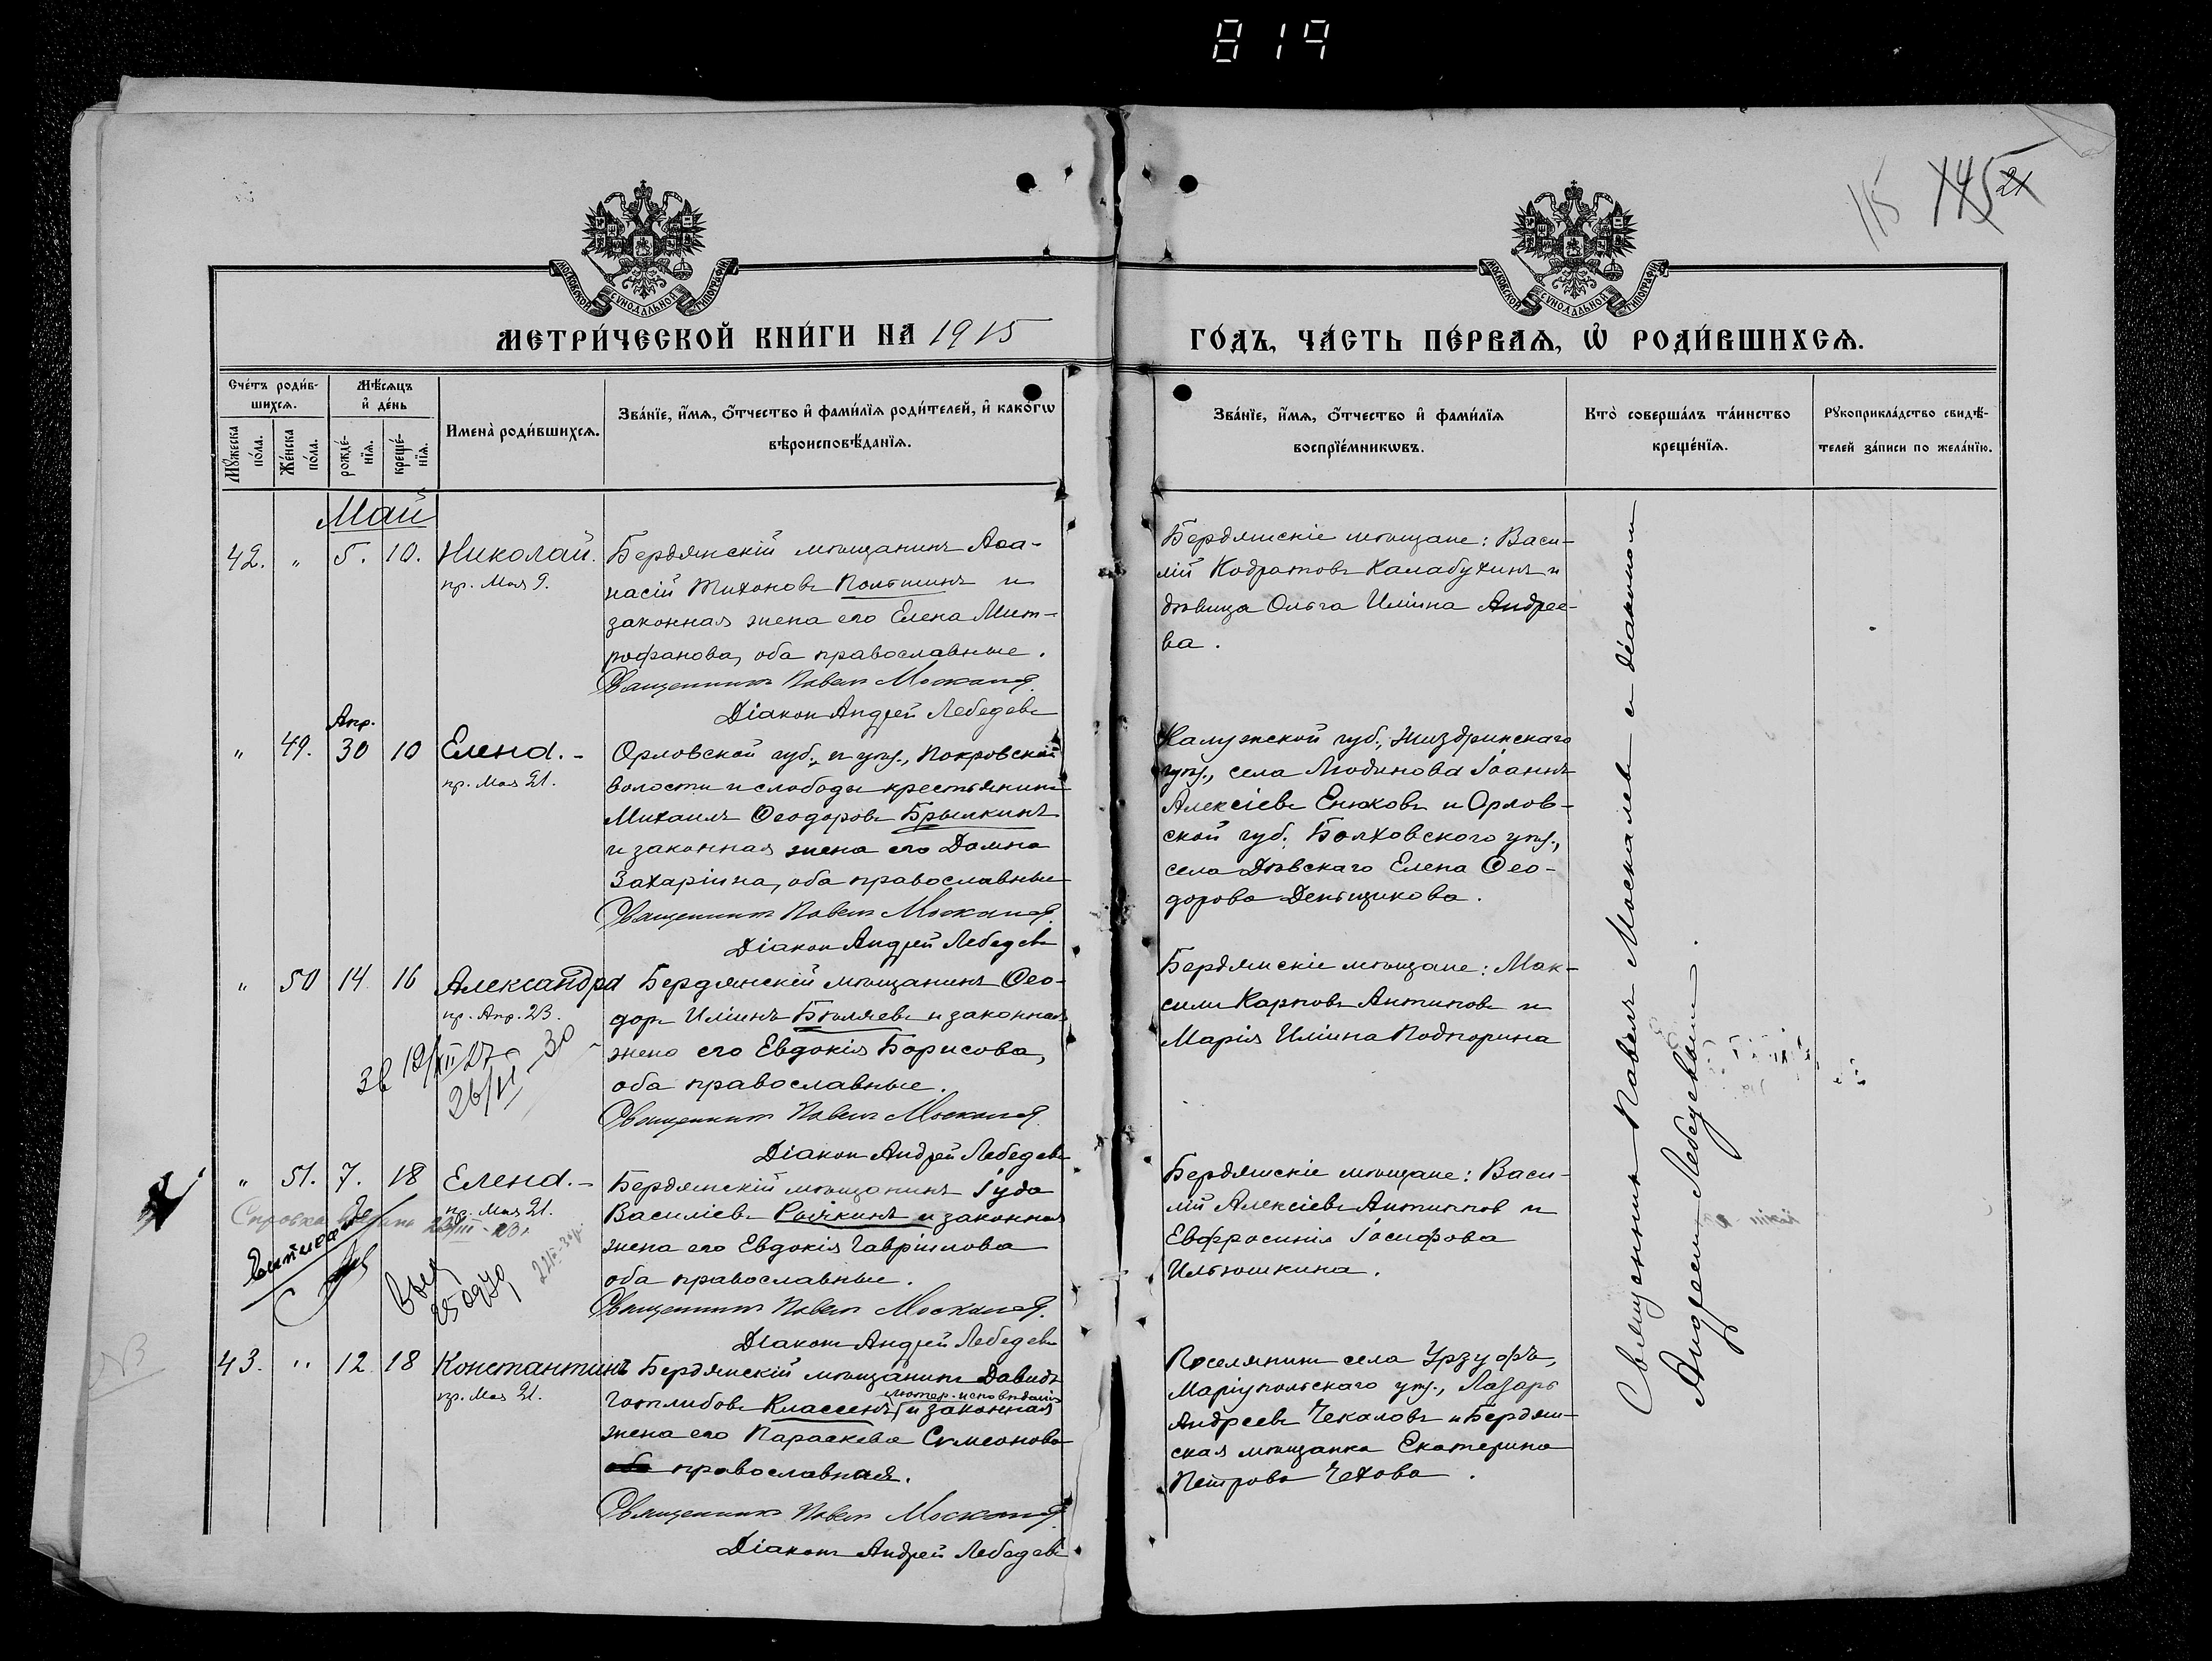 819
115
145
21
МОСКОВСКОЙ СѴНОДАЛЬНОЙ ТИПОГРАФІИ
МОСКОВСКОЙ СѴНОДАЛЬНОЙ ТИПОГРАФІИ
МЕТРИ́ЧЕСКОЙ КНИ́ГИ НА 1915
ГО́ДЪ, ЧА́СТЬ ПЕ́РВАѦ, Ѡ҆ РОДИ́ВШИХСѦ.
Сче́тъ роди́в-
шихсѧ.
Мѣ́сѧцъ
и҆ де́нь
Мꙋ́жеска
по́ла.
Же́нска
по́ла.
рожде́-
нїѧ.
креще́-
нїѧ.
Имена̀ роди́вшихсѧ.
Зва́нїе, и҆́мѧ, ѻ҆́тчество и҆ фами́лїѧ роди́телей, и҆ како́гѡ
вѣроисповѣ́данїѧ.
Зва́нїе, и҆́мѧ, ѻ҆́тчество и҆ фами́лїѧ
воспрїе́мникѡвъ.
Кто̀ соверша́лъ та́инство
креще́нїѧ.
Рꙋкоприкла́дство свидѣ́-
телей за́писи по жела́нїю.
Май
42. " 5. 10. Николай.
пр. Мая 9.
Бердянскій мѣщанинъ Аѳа-
насій Тихоновъ Полтининъ и
законная жена его Елена Мит-
рофанова, оба православные.
Священникъ Павелъ Москалевъ
Діаконъ Андрей Лебедевъ
Бердянскіе мѣщане: Васи-
лій Кодратовъ Калабухинъ и
дѣвица Ольга Иліина Андрее-
ва.
Апр.
" 49. 30 10 Елена.-
пр. Мая 21.
Орловской губ., и уѣз., Покровской
волости и слободы крестьянинъ
Михаилъ Ѳеодоровъ Брылкинъ
и законная жена его Домна
Захаріина, оба православные
Священникъ Павелъ Москалевъ
Діаконъ Андрей Лебедевъ
Калужской губ., Жиздринскаго
уѣз., села Людинова Іоаннъ
Алексіевъ Енюковъ и Орлов-
ской губ. Болховского уѣз.,
села Дѣвскаго Елена Ѳео-
дорова Деньщикова.
" 50 14 16 Александра
пр. Апр. 23.
Бердянскій мѣщанинъ Ѳео-
доръ Иліинъ Бѣляевъ и законная
жена его Евдокія Борисова,
оба православные.
Священникъ Павелъ Москалевъ
Діаконъ Андрей Лебедевъ
Бердянскіе мѣщане: Мак-
симъ Карповъ Антиповъ и
Марія Иліина Подпорина
12/XII 27
26/VI - 30
" 51. 7. 18 Елена.-
пр. Мая 21.
Справка
Бердянскій мѣщанинъ Іуда
Василіевъ Рычкинъ и законная
жена его Евдокія Гавріилова
оба православные.
Священникъ Павелъ Москалевъ
Діаконъ Андрей Лебедевъ
Бердянскіе мѣщане: Васи-
лій Алексіевъ Антиповъ и
Евфросинія Іосифова
Ильюшкина.
43. " 12 18 Константинъ
пр. Мая 21.
Бердянскій мѣщанинъ Давидъ
лютер. исповѣданія
Готлибовъ Классенъ, и законная
жена его Параскева Симеонова
оба православная.
Священникъ Павелъ Москалевъ
Діаконъ Андрей Лебедевъ
Поселянинъ села Урзуфъ,
Маріупольскаго уѣз., Лазарь
Андреевъ Чекаловъ и Бердян-
ская мѣщанка Екатерина
Петрова Чехова.
Священникъ Павелъ Москалевъ с діакономъ
Андреемъ Лебедевымъ.